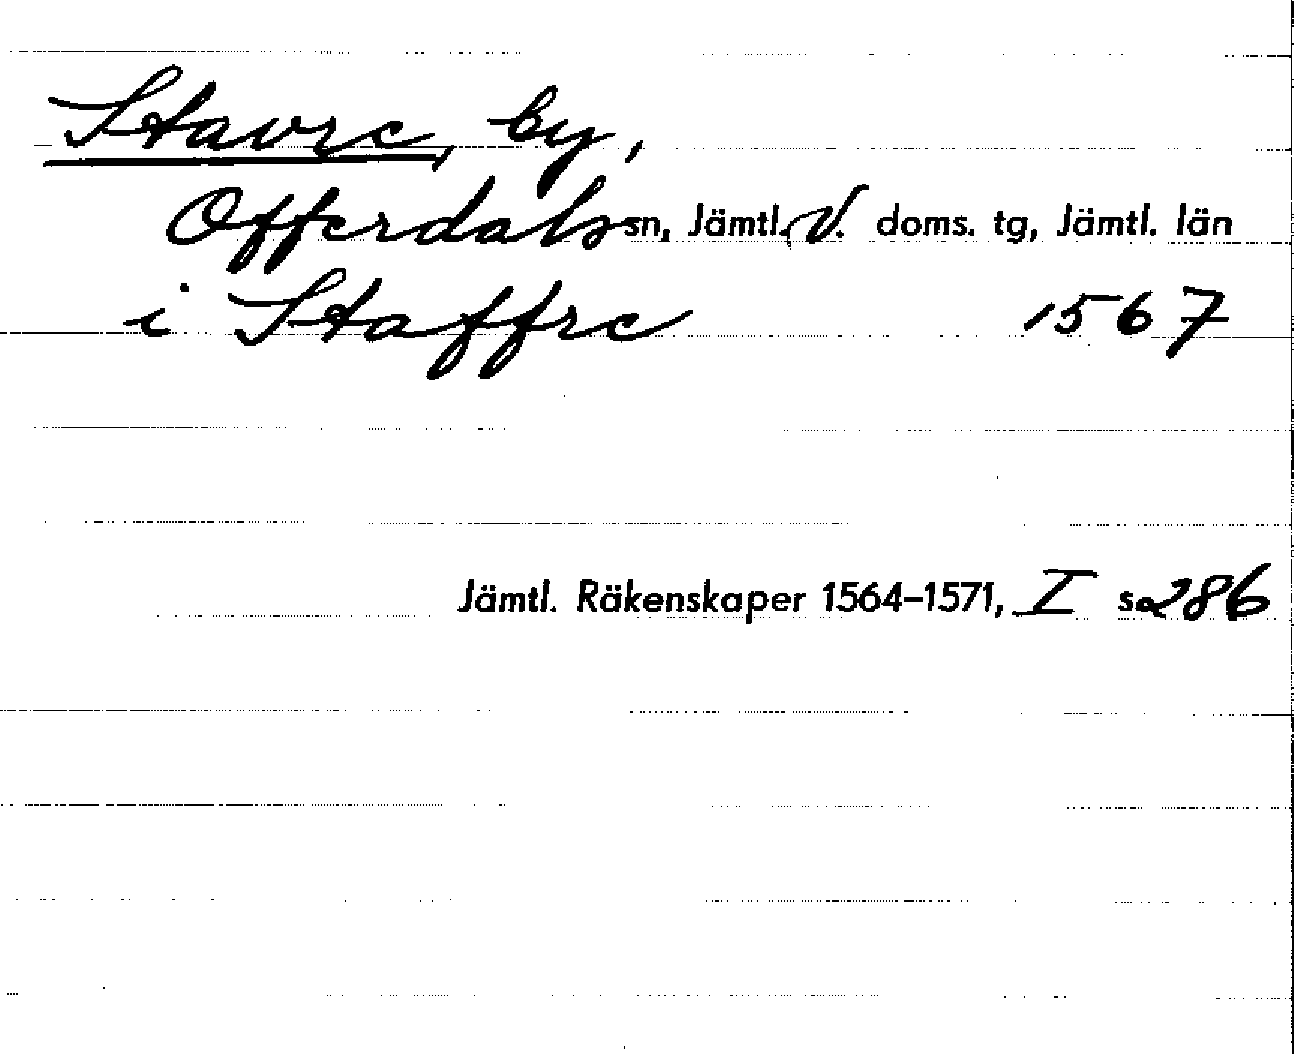 Stavre, by,
Offerdals sn, Jämtl. V. doms. tg, Jämtl. län
i Staffre 1567
Jämtl. Räkenskaper 1564–1571, I s. 286